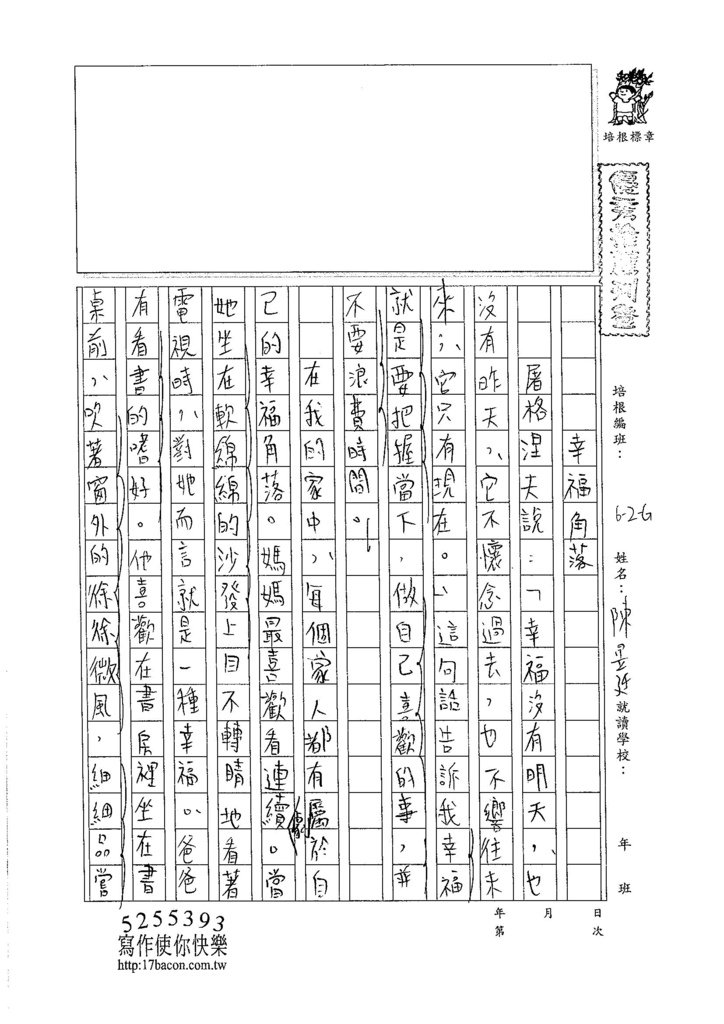 培根標章
優秀推薦刊登
培根編班：6-2G 姓名：陳昱廷 就讀學校： 年 班
年 月 日
第 次
幸福角落
屠格涅夫說：「幸福沒有明天，也
沒有昨天，它不懷念過去，也不嚮往未
來，它只有現在。」這句話告訴我幸福
就是要把握當下，做自己喜歡的事，並
不要浪費時間。
在我的家中，每個家人都有屬於自
己的幸福角落。媽媽最喜歡看連續劇。當
她坐在軟綿綿的沙發上目不轉睛地看著
電視時，對她而言就是一種幸福。爸爸
有看書的嗜好。他喜歡在書房裡坐在書
桌前，吹著窗外的徐徐微風，細細品嘗
5255393
寫作使你快樂
http:17bacon.com.tw